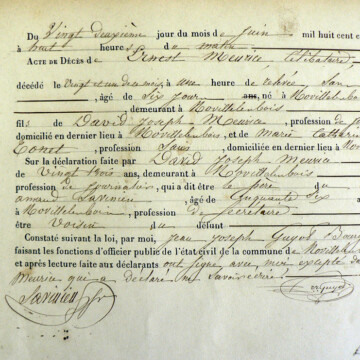 Du Vingt deuxième jour du mois de Juin mil huit cent
à huit heures de matin
ACTE DE DÉCÈS de Ernest Meurice célibataire
décédé le Vingt et un du mois a une heure de
, âgé de Six jour ans, né à Novillelesbois
, demeurant à Novillelesbois
fils de David Joseph Meurice, profession de
domicilié en dernier lieu à Novillelesbois, et de Marie Catherine
Tonet, profession Sans, domiciliée en dernier lieu à No
Sur la déclaration faite par David Joseph Meurice
de Vingt trois ans, demeurant à Novillelesbois
profession de Journalier, qui a dit être le père du
amand Savinien, âgé de Cinquante Six
à Novillelesbois, profession de Secretaire
être Voisin du défunt
Constaté suivant la loi, par moi, Jean Joseph Guyot
faisant les fonctions d'officier public de l'état civil de la commune de Noville
et après lecture faite aux déclarants ont signé avec moi excepté
Meurice qui a déclaré ne Savoir écrire
Savinien